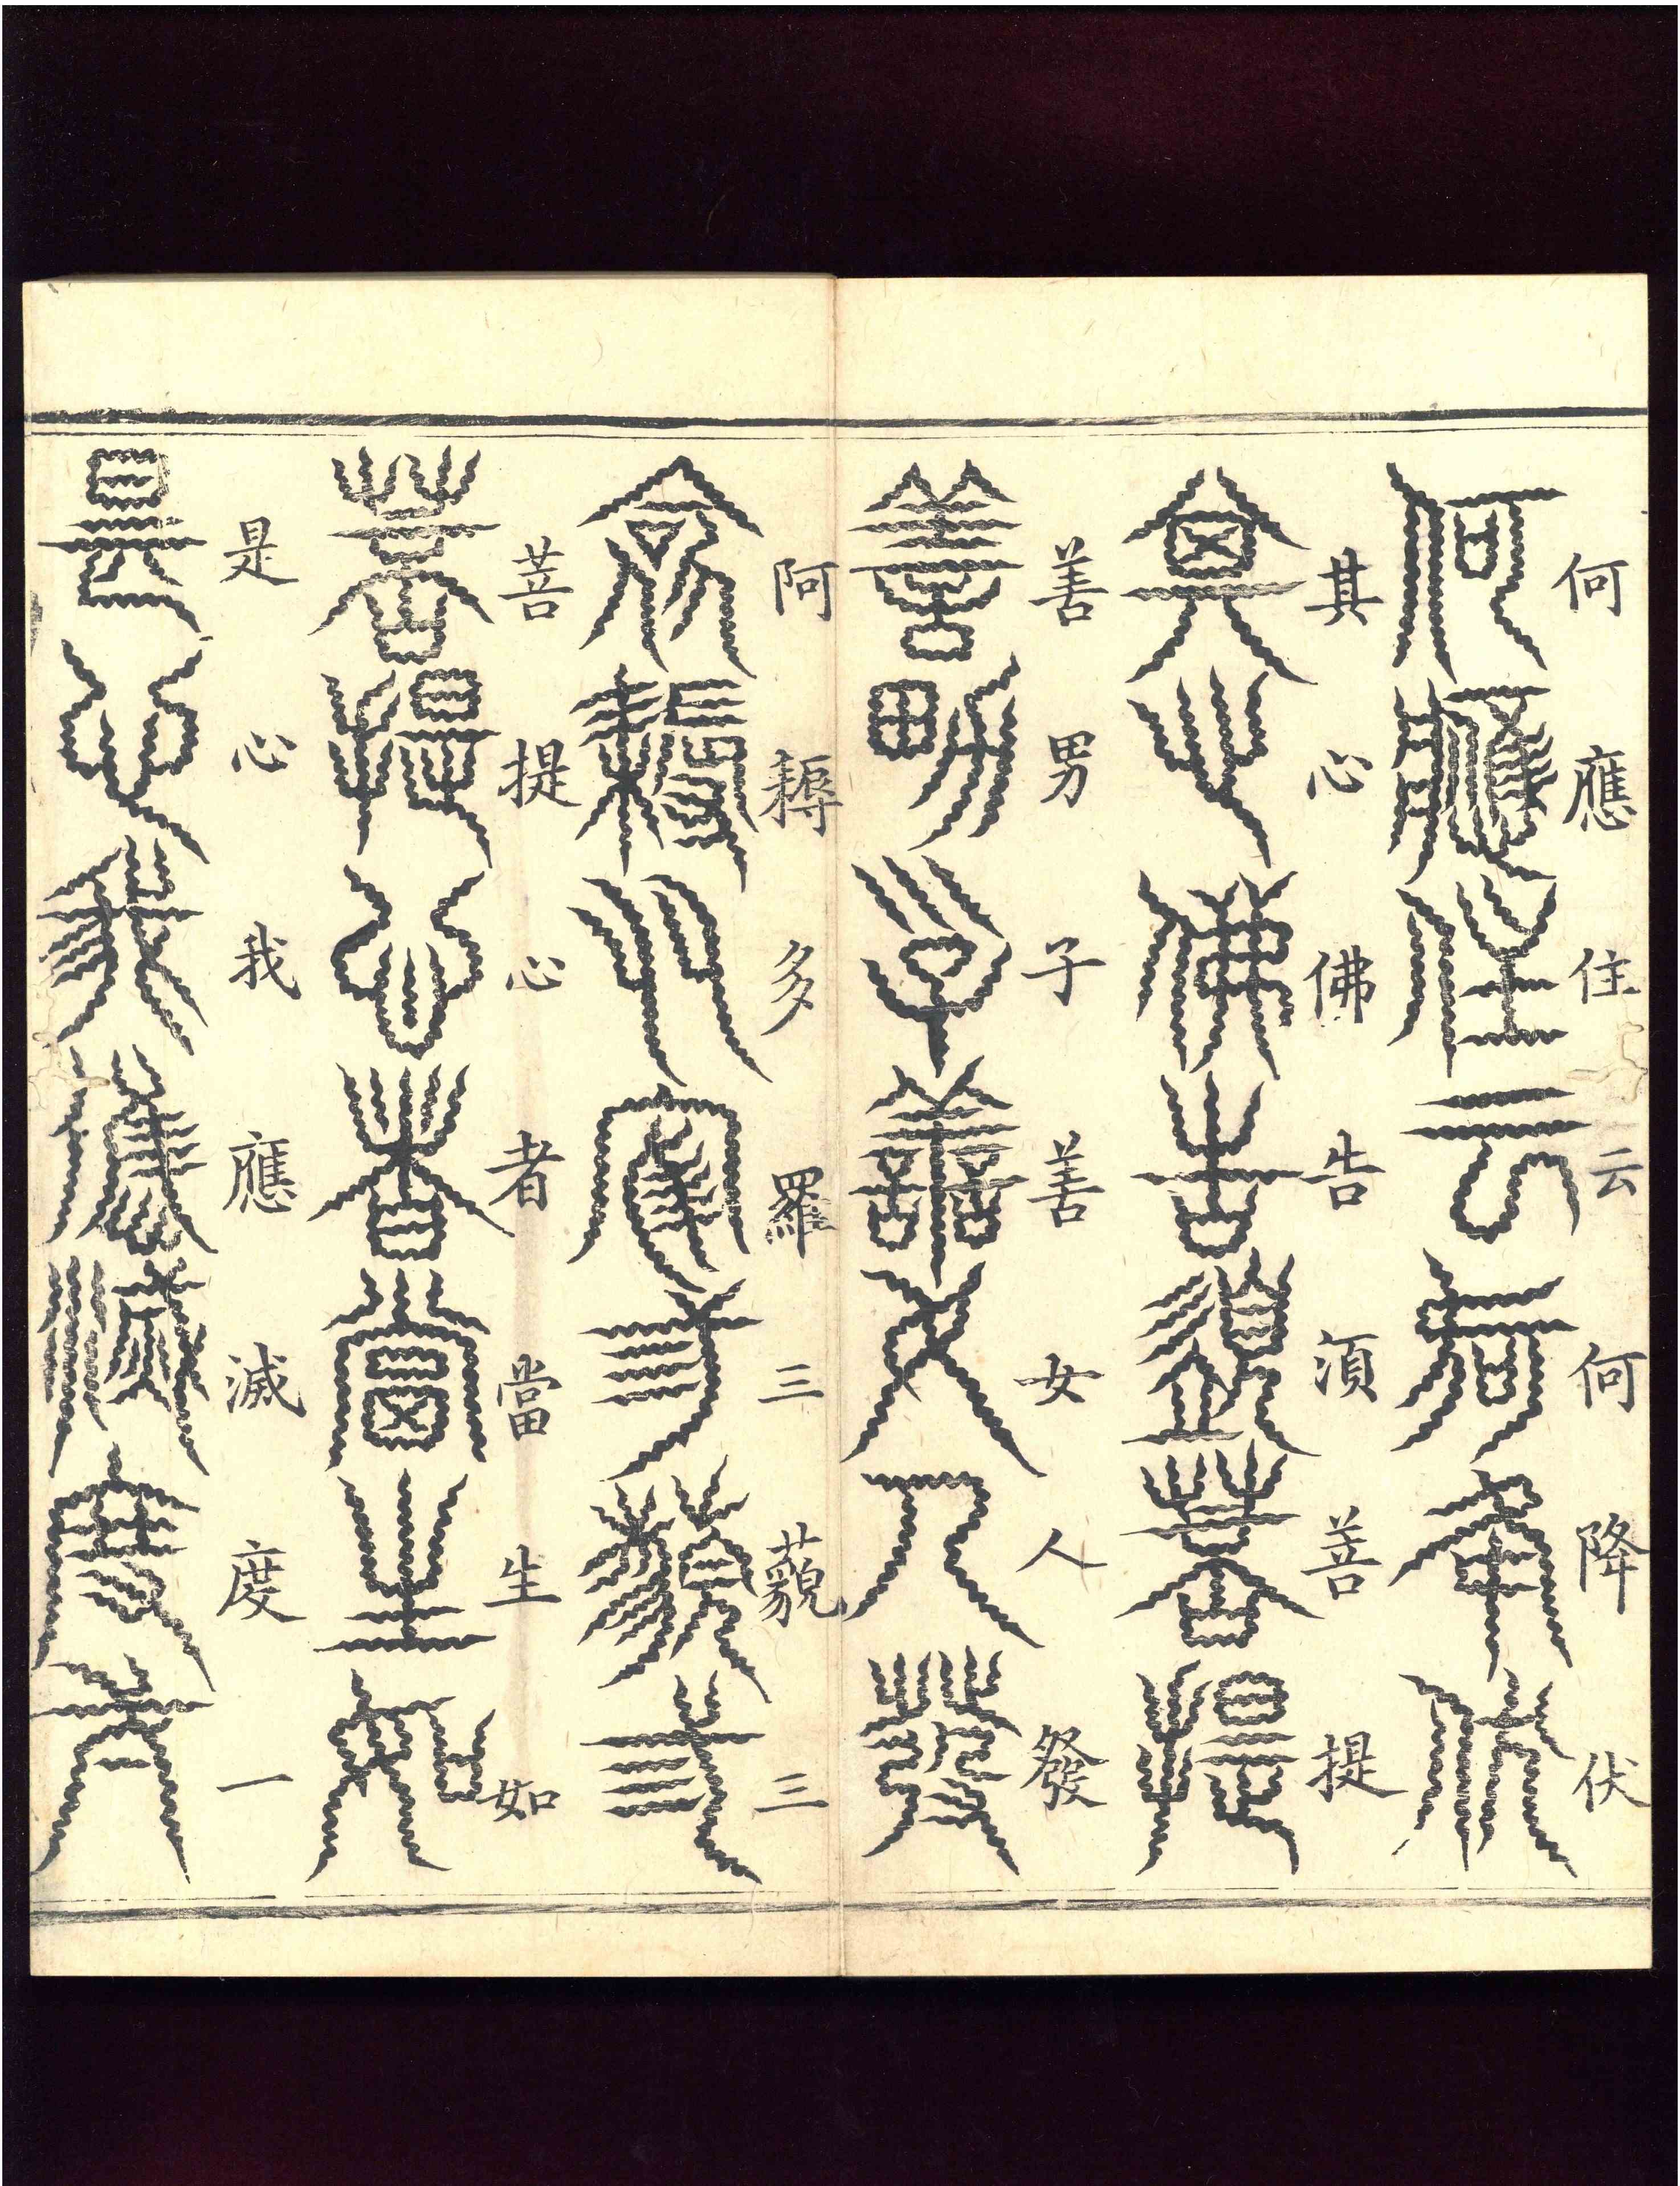 何應住云何降伏
其心佛告須菩提
善男子善女人發
阿耨多羅三藐三
菩提心者當生如
是心我應滅度一